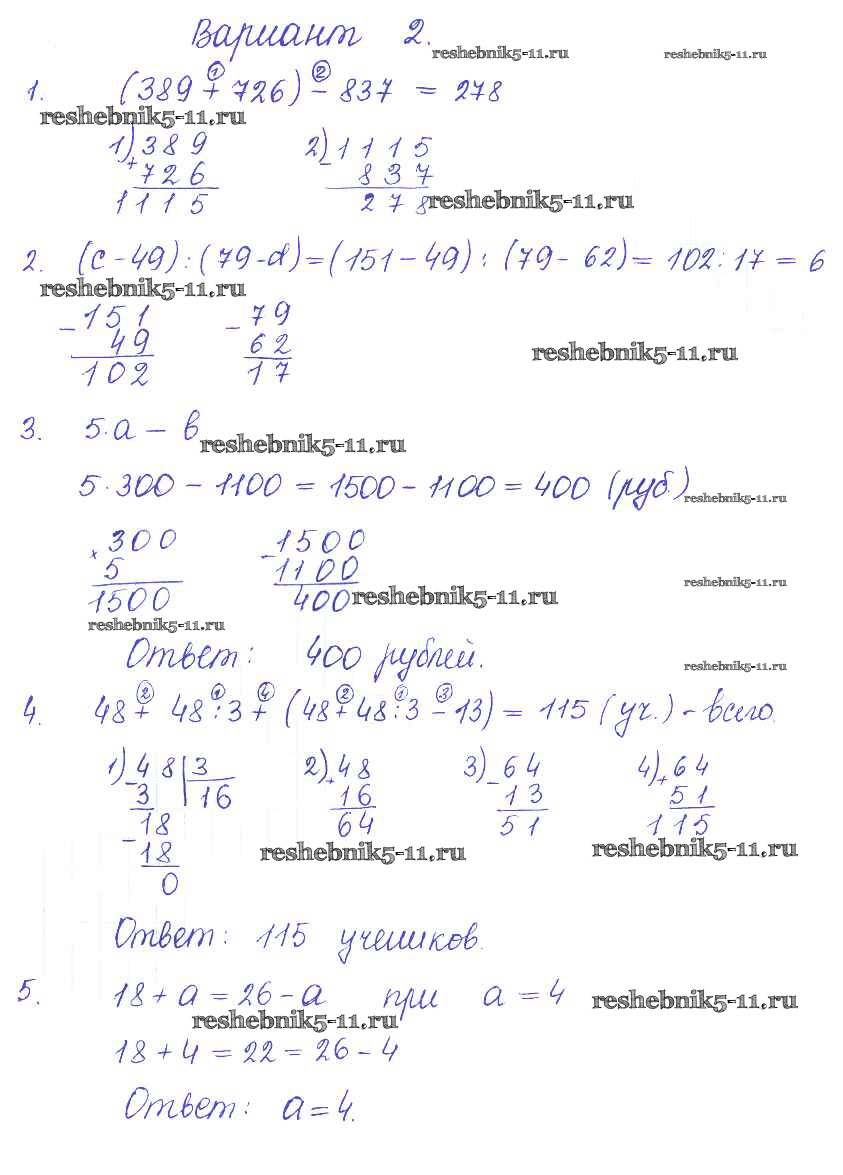 Вариант 2.
reshebnik5-11.ru reshebnik5-11.ru
① ②
1. (389 + 726) - 837 = 278
reshebnik5-11.ru
1) 389 2) 1115
+ 726 - 837
1115 278 reshebnik5-11.ru
2. (с-49):(79-d)=(151-49):(79-62)=102:17=6
reshebnik5-11.ru
- 151 - 79
49 62 reshebnik5-11.ru
102 17
3. 5·а - в
reshebnik5-11.ru
5·300 - 1100 = 1500 - 1100 = 400 (руб.) reshebnik5-11.ru
× 300 - 1500
5 1100 reshebnik5-11.ru
1500 400 reshebnik5-11.ru
reshebnik5-11.ru
Ответ: 400 рублей. reshebnik5-11.ru
② ① ④ ② ① ③
4. 48 + 48:3 + (48+48:3 - 13) = 115 (уч.) - всего.
1) 48 3 2) 48 3) 64 4) 64
- 3 16 + 16 - 13 + 51
18 64 51 115
- 18 reshebnik5-11.ru reshebnik5-11.ru
0
Ответ: 115 учеников.
5. 18 + а = 26 - а при а = 4 reshebnik5-11.ru
reshebnik5-11.ru
18 + 4 = 22 = 26 - 4
Ответ: а = 4.